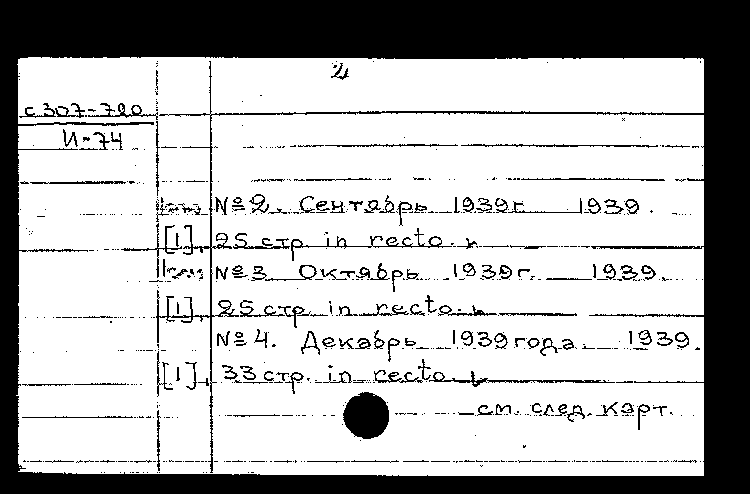 2
с307-720
И-74
№2. Сентябрь 1939г. 1939.
[1], 25 стр. in recto.
№3 Октябрь 1939г. 1939.
[1], 25 стр. in recto.
№4. Декабрь 1939 года. 1939.
[1], 33 стр. in recto.
см. след. карт.